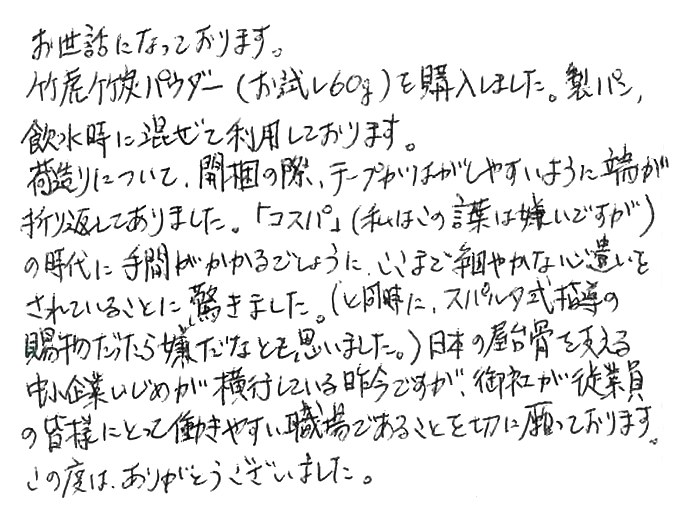 お世話になっております。
竹虎竹炭パウダー(お試し60g)を購入しました。製パン,
飲水時に混ぜて利用しております。
荷造りについて、開梱の際、テープがはがしやすいように端が
折り返してありました。「コスパ」(私はこの言葉は嫌いですが)
の時代に手間がかかるでしょうに、ここまで細やかな心遣いを
されていることに驚きました。(と同時に、スパルタ式指導の
賜物だったら嫌だなとも思いました。)日本の屋台骨を支える
中小企業いじめが横行している昨今ですが、御社が従業員
の皆様にとって働きやすい職場であることを切に願っております。
この度は、ありがとうございました。